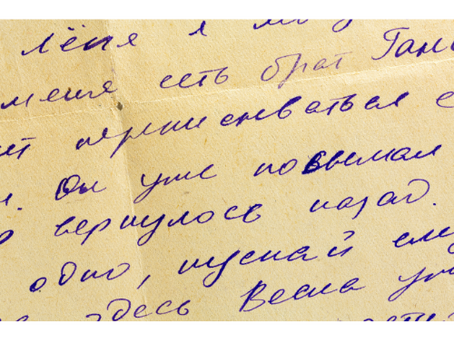 лёня я
меня есть брат Ган
переписываться с
. Он уже посылал
вернулось назад.
одно, пускай
здесь Весна